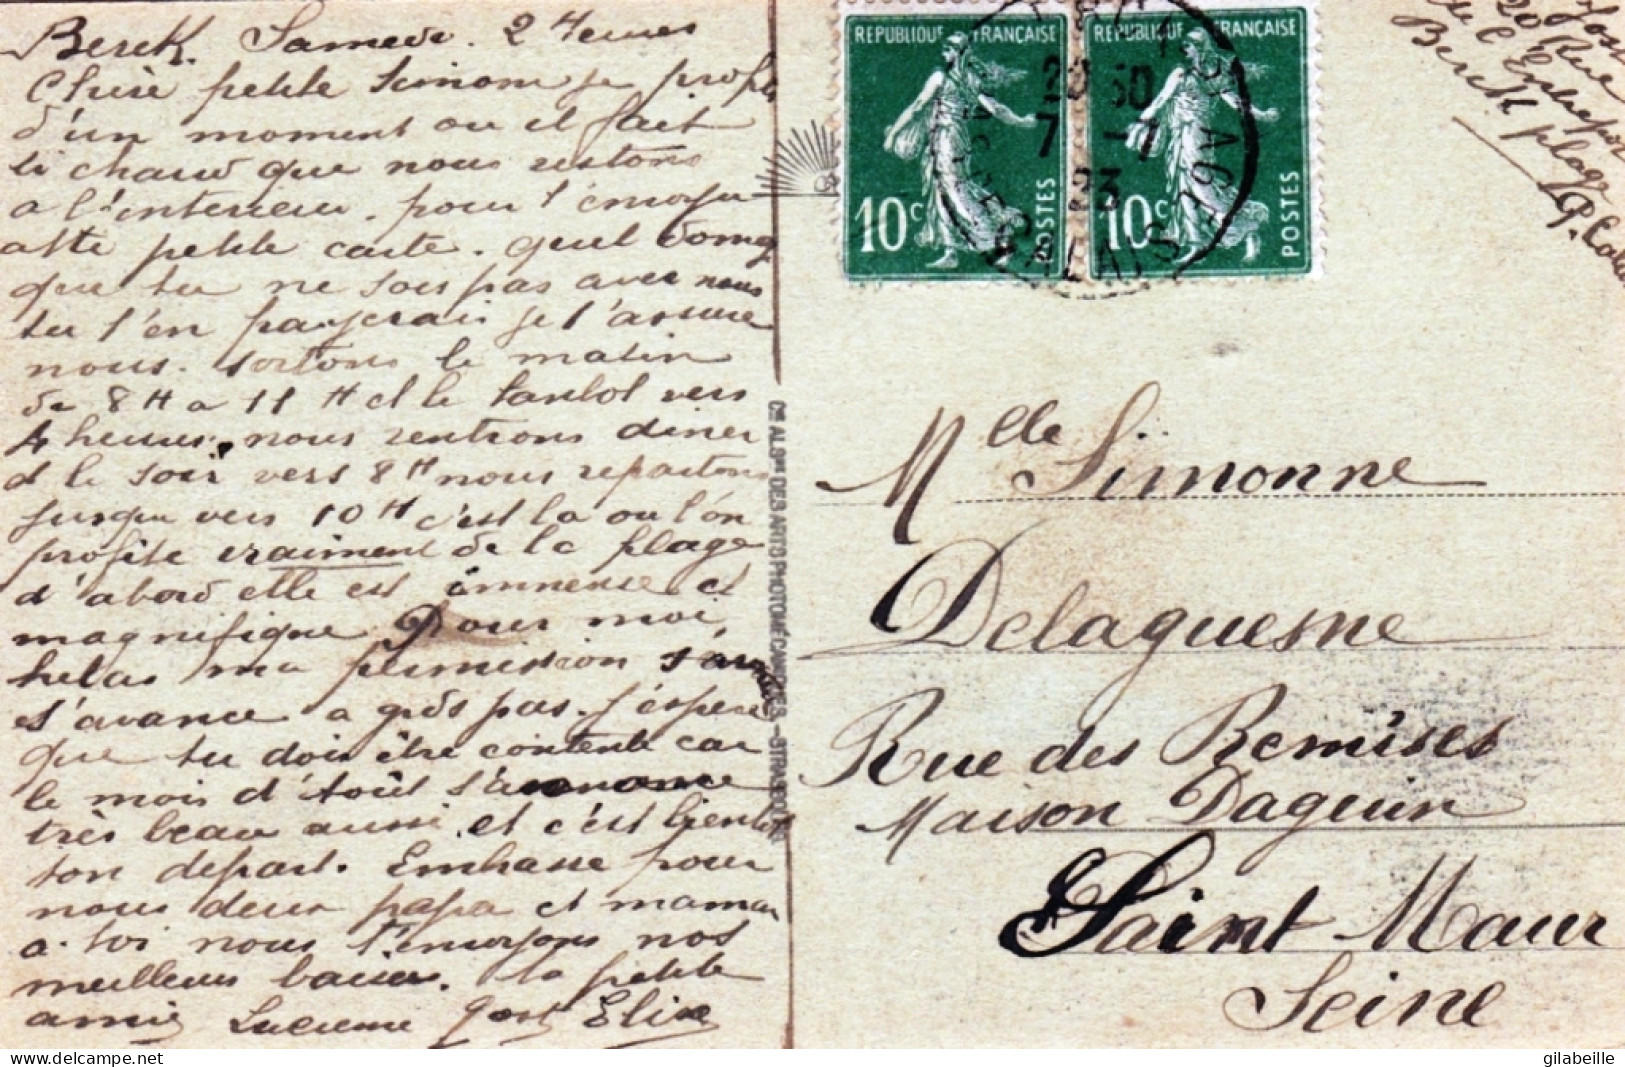 Berck. Samedi. 2 Heures
Chère petite Simone je profite
d'un moment ou il fait
si chaud que nous restons
a l'interieur. pour t'envoyer
cette petite carte. quel domg
que tu ne sois pas avec nous
tu t'en payerais je t'assure
nous. sortons le matin
de 8 H a 11 H et le tantot vers
4 heures. nous rentrons diner
et le soir vers 8H nous repartons
jusque vers 10H c'est la ou l'on
profite vraiment de la plage
d'abord elle est immense et
magnifique Pour moi,
helas ma permission
s'avance a gros pas. j'espere
que tu dois être contente car
le mois d'aout s'avance
très beau aussi. et c'est bientot
ton depart. Embrasse pour
nous deux papa et maman
a toi nous t'envoyons nos
meilleurs baisers. ta petite
amie Lucienne Jost Elise
Cie ALSne DES ARTS PHOTOMÉCANIQUES - STRASBOURG
REPUBLIQUE FRANÇAISE
10c
POSTES
REPUBLIQUE FRANÇAISE
10c
POSTES
20 30
7 -7
23
PAS DE CALAIS
Jost
20 Rue
de l'Entrepot
Berck plage
P. Calais
Mlle Simonne
Delaguesne
Rue des Remises
Maison Daguin
Saint Maur
Seine
delcampe.net
gilabeille